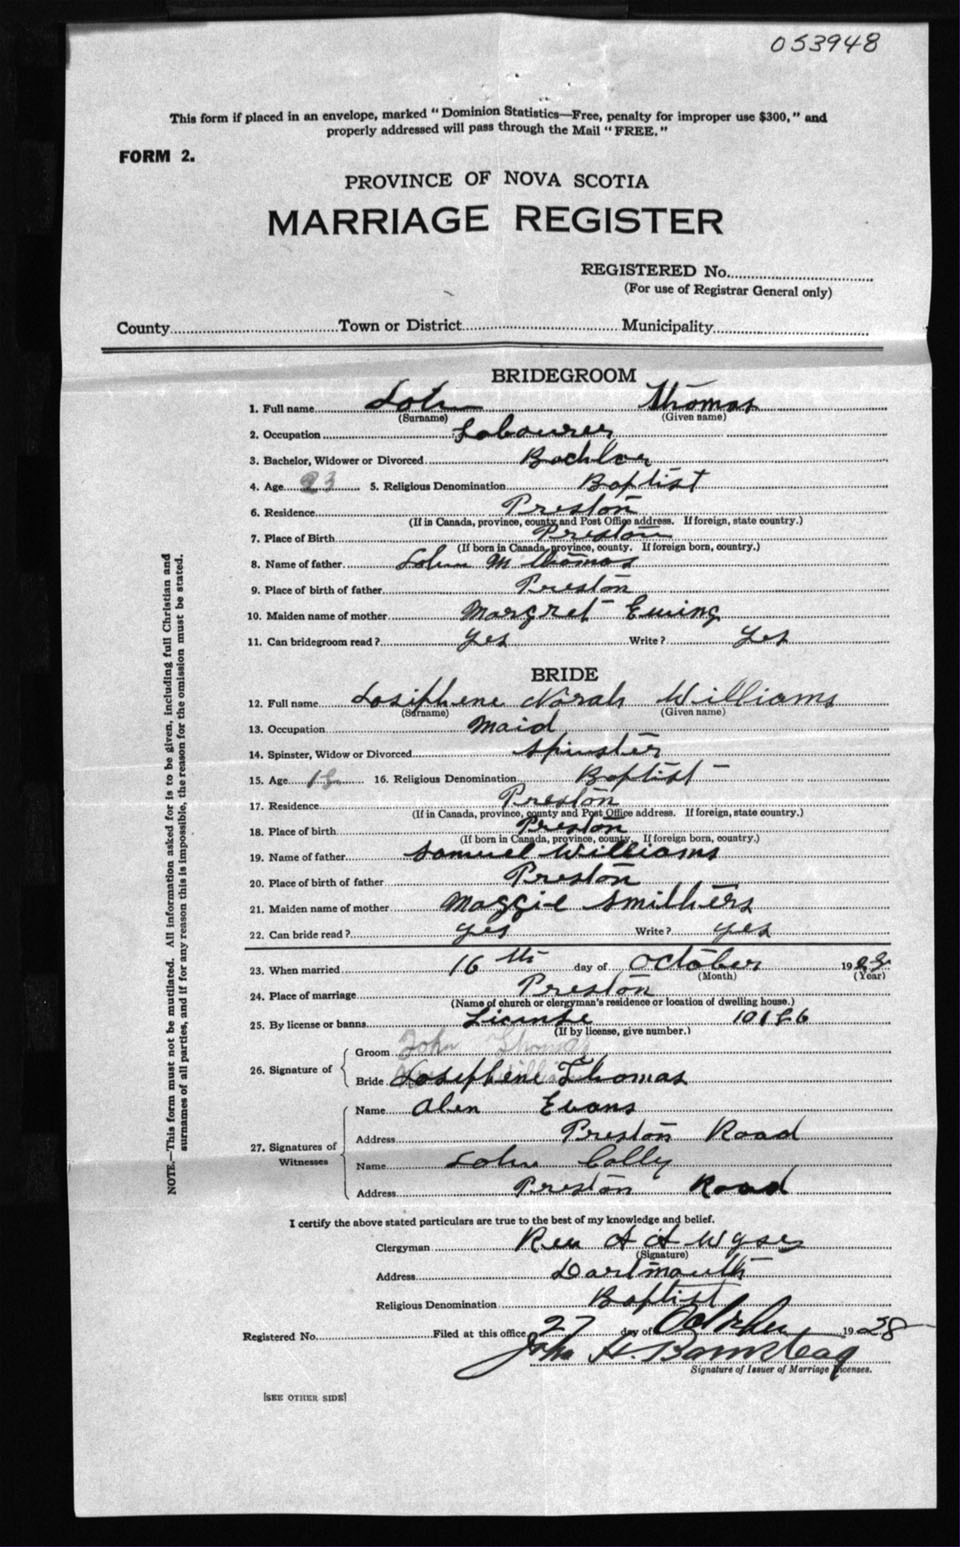 053948
This form if placed in an envelope, marked "Dominion Statistics—Free, penalty for improper use $300," and
properly addressed will pass through the Mail "FREE."
FORM 2.
PROVINCE OF NOVA SCOTIA
MARRIAGE REGISTER
REGISTERED No.
(For use of Registrar General only)
County Town or District Municipality
BRIDEGROOM
1. Full name John Thomas
(Surname) (Given name)
2. Occupation Labourer
3. Bachelor, Widower or Divorced Bachlor
4. Age 23 5. Religious Denomination Baptist
6. Residence Preston
(If in Canada, province, county and Post Office address. If foreign, state country.)
7. Place of Birth Preston
(If born in Canada, province, county. If foreign born, country.)
8. Name of father John M Thomas
9. Place of birth of father Preston
10. Maiden name of mother Margret Ewing
11. Can bridegroom read? yes Write? yes
BRIDE
12. Full name Josiphene Norah Williams
(Surname) (Given name)
13. Occupation Maid
14. Spinster, Widow or Divorced Spinster
15. Age 16. Religious Denomination Baptist
17. Residence Preston
(If in Canada, province, county and Post Office address. If foreign, state country.)
18. Place of birth Preston
(If born in Canada, province, county. If foreign born, country.)
19. Name of father Samuel Williams
20. Place of birth of father Preston
21. Maiden name of mother Maggie Smithers
22. Can bride read? yes Write? yes
23. When married 16 th day of October 19
(Month) (Year)
24. Place of marriage Preston
(Name of church or clergyman's residence or location of dwelling house.)
25. By license or banns License
(If by license, give number.)
26. Signature of
Groom John Thomas
Bride Josephene Thomas
27. Signatures of Witnesses
Name Alen Evans
Address Preston Road
Name John Colly
Address Preston Road
I certify the above stated particulars are true to the best of my knowledge and belief.
Clergyman Rev A A Wyse
(Signature)
Address Dartmouth
Religious Denomination Baptist
Registered No. Filed at this office 27 day of October 1928
John H. Barnstead
Signature of Issuer of Marriage Licenses.
[SEE OTHER SIDE]
NOTE.—This form must not be mutilated. All information asked for is to be given, including full Christian and
surnames of all parties, and if for any reason this is impossible, the reason for the omission must be stated.